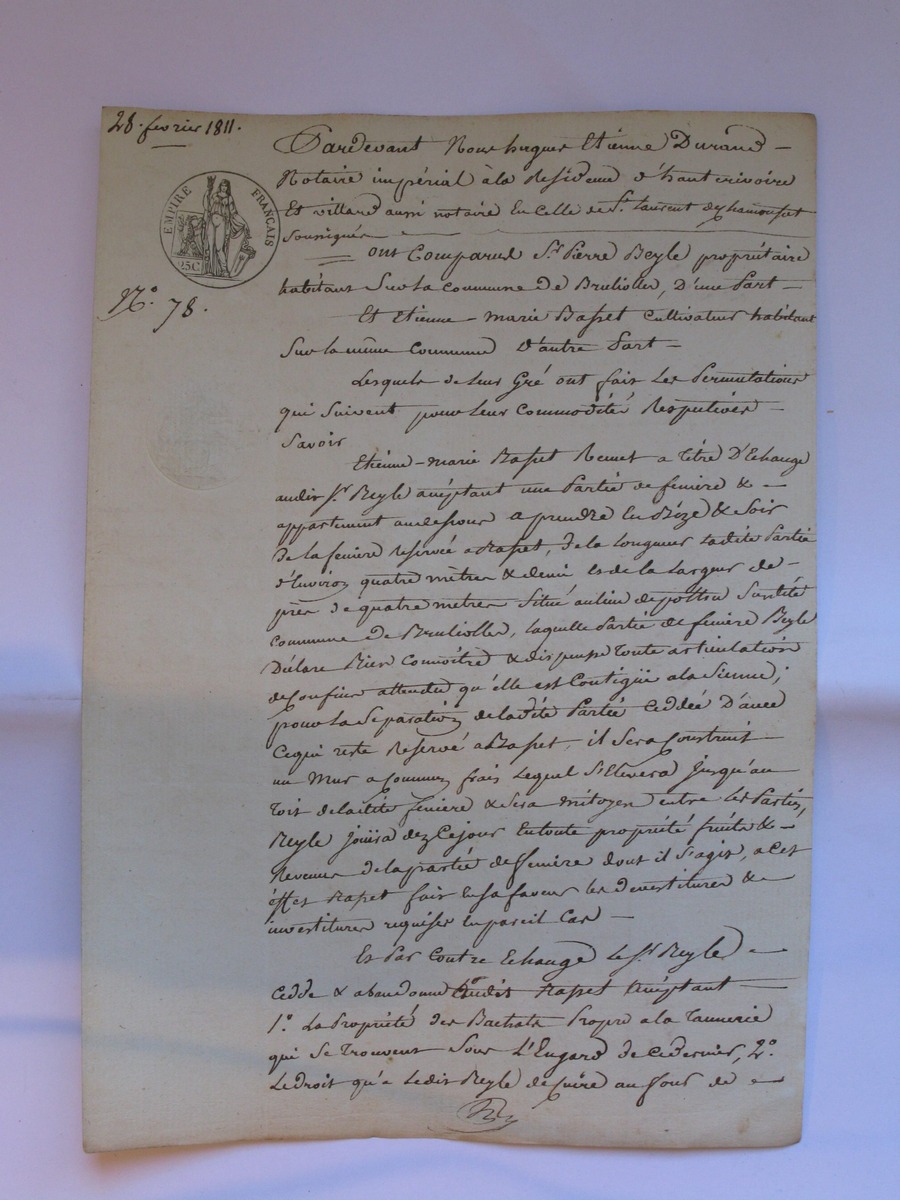 28. fevrier 1811.
EMPIRE FRANÇAIS
25C
N.° 78.
Pardevant Nous hugues Etienne Durand
Notaire impérial à la Residence d'hauterivoire
Et villard aussi notaire En Celle de St. Laurent de chamousset
Soussignés
ont Comparus Sr. Pierre Beyle propriétaire
habitant Sur la Commune de Brulioller, D'une Part
Et Etienne-marie Basset Cultivateur habitant
Sur la même Commune D'autre Part
Lesquels de leur Gré ont fait Les Permutations
qui Suivent pour leur Commodités Respectives
Savoir
Etienne-marie Basset Remet a Titre D'Echange
audit Sr. Beyle acceptant une Partie de feniere &
appartement audessous a prendre En Bize & Soir
De la feniere reservée a Basset, de la Longueur Ladite Partie
d'Environ quatre mètres & demi et de la Largeur de
près de quatre metres Situé au lieu de Susdite
Commune de Brulioller, laquelle Partie de feniere Beyle
Déclare Bien Connoître & dispense Toute articulation
de Confins attendu qu'elle est Contigüe a la Sienne;
pour la Séparation de ladite Partie Ceddée D'avec
Ce qui reste Reservé a Basset, il Sera Construit
un Mur a Communs frais Lequel S'Elevera Jusqu'au
Toit de ladite feniere & Sera mitoyen entre Les Parties,
Beyle Jouira dez Ce jour En toute propriété fruits &
Revenus de la partie de feniere dont il S'agit, a Cet
Effet Basset fait En Sa faveur les devestitures &
investitures requises En pareil Cas
Et Par Contre Echange Le Sr. Beyle
Cedde & abandonne Audit Basset Acceptant
1.° La Propriété des Bachats Propre a la Tannerie
qui Se Trouvent Sous L'Engard de Ce dernier, 2.°
Le droit qu'a Ledit Beyle de Cuire au four de